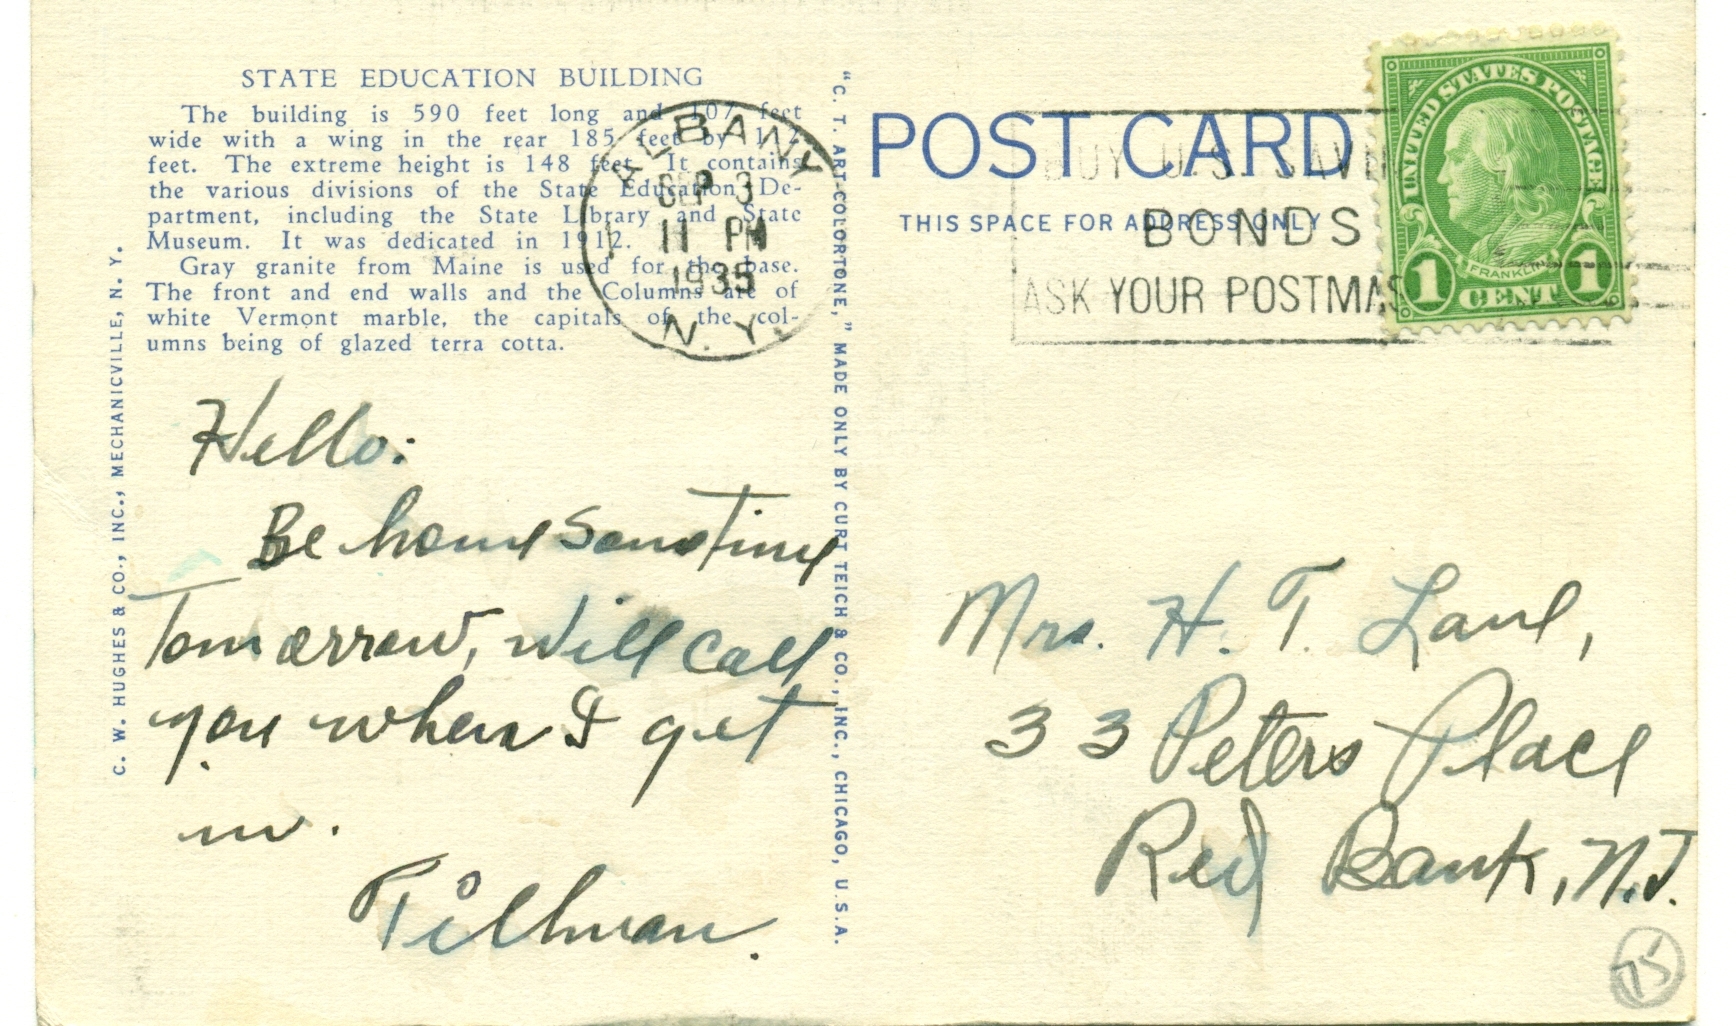 STATE EDUCATION BUILDING
The building is 590 feet long and 107 feet
wide with a wing in the rear 185 feet by
feet. The extreme height is 148 feet. It contains
the various divisions of the State Education De-
partment, including the State Library and State
Museum. It was dedicated in 1912.
Gray granite from Maine is used for the base.
The front and end walls and the Columns are of
white Vermont marble, the capitals of the col-
umns being of glazed terra cotta.
C. W. HUGHES & CO., INC., MECHANICVILLE, N. Y.
ALBANY
SEP 3
11 PM
1935
N. Y.
"C. T. ART-COLORTONE," MADE ONLY BY CURT TEICH & CO., INC., CHICAGO, U.S.A.
POST CARD
THIS SPACE FOR ADDRESS ONLY
BUY U.S. SAVIN
BONDS
ASK YOUR POSTMAS
UNITED STATES POSTAGE
FRANKLIN
1 CENT 1
Hello:
Be home sometime
Tomorrow, will call
you when I get
in.
Tillman.
Mrs. H. T. Lane,
33 Peters Place
Red Bank, N.J.
75